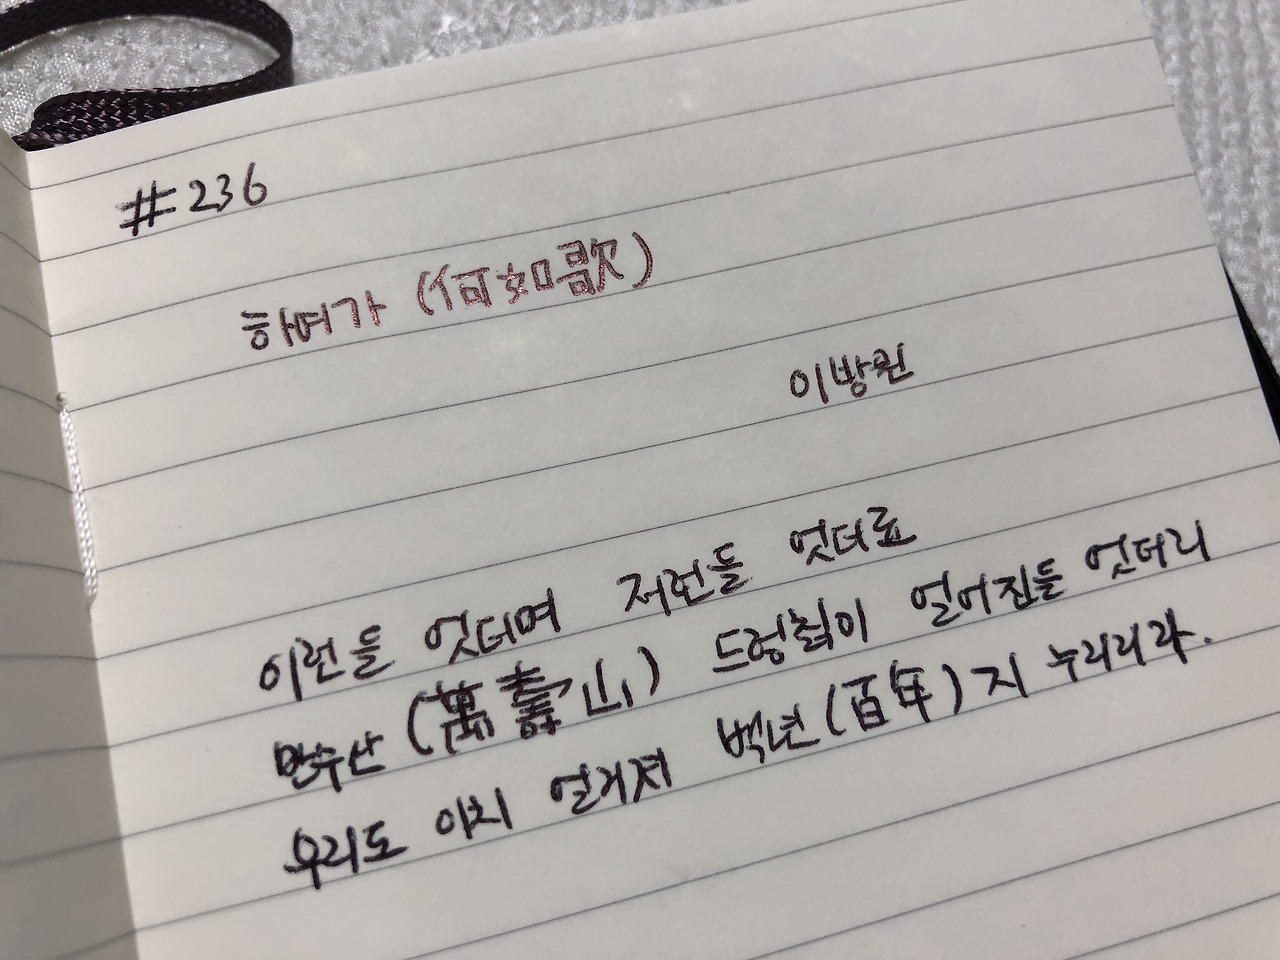 #236
하여가 (何如歌)
이방원
이런들 엇더며 저런들 엇더료
만수산 (萬壽山) 드렁칡이 얼어진들 엇더리
우리도 이치 얼거져 백년 (百年) 지 누리리라.